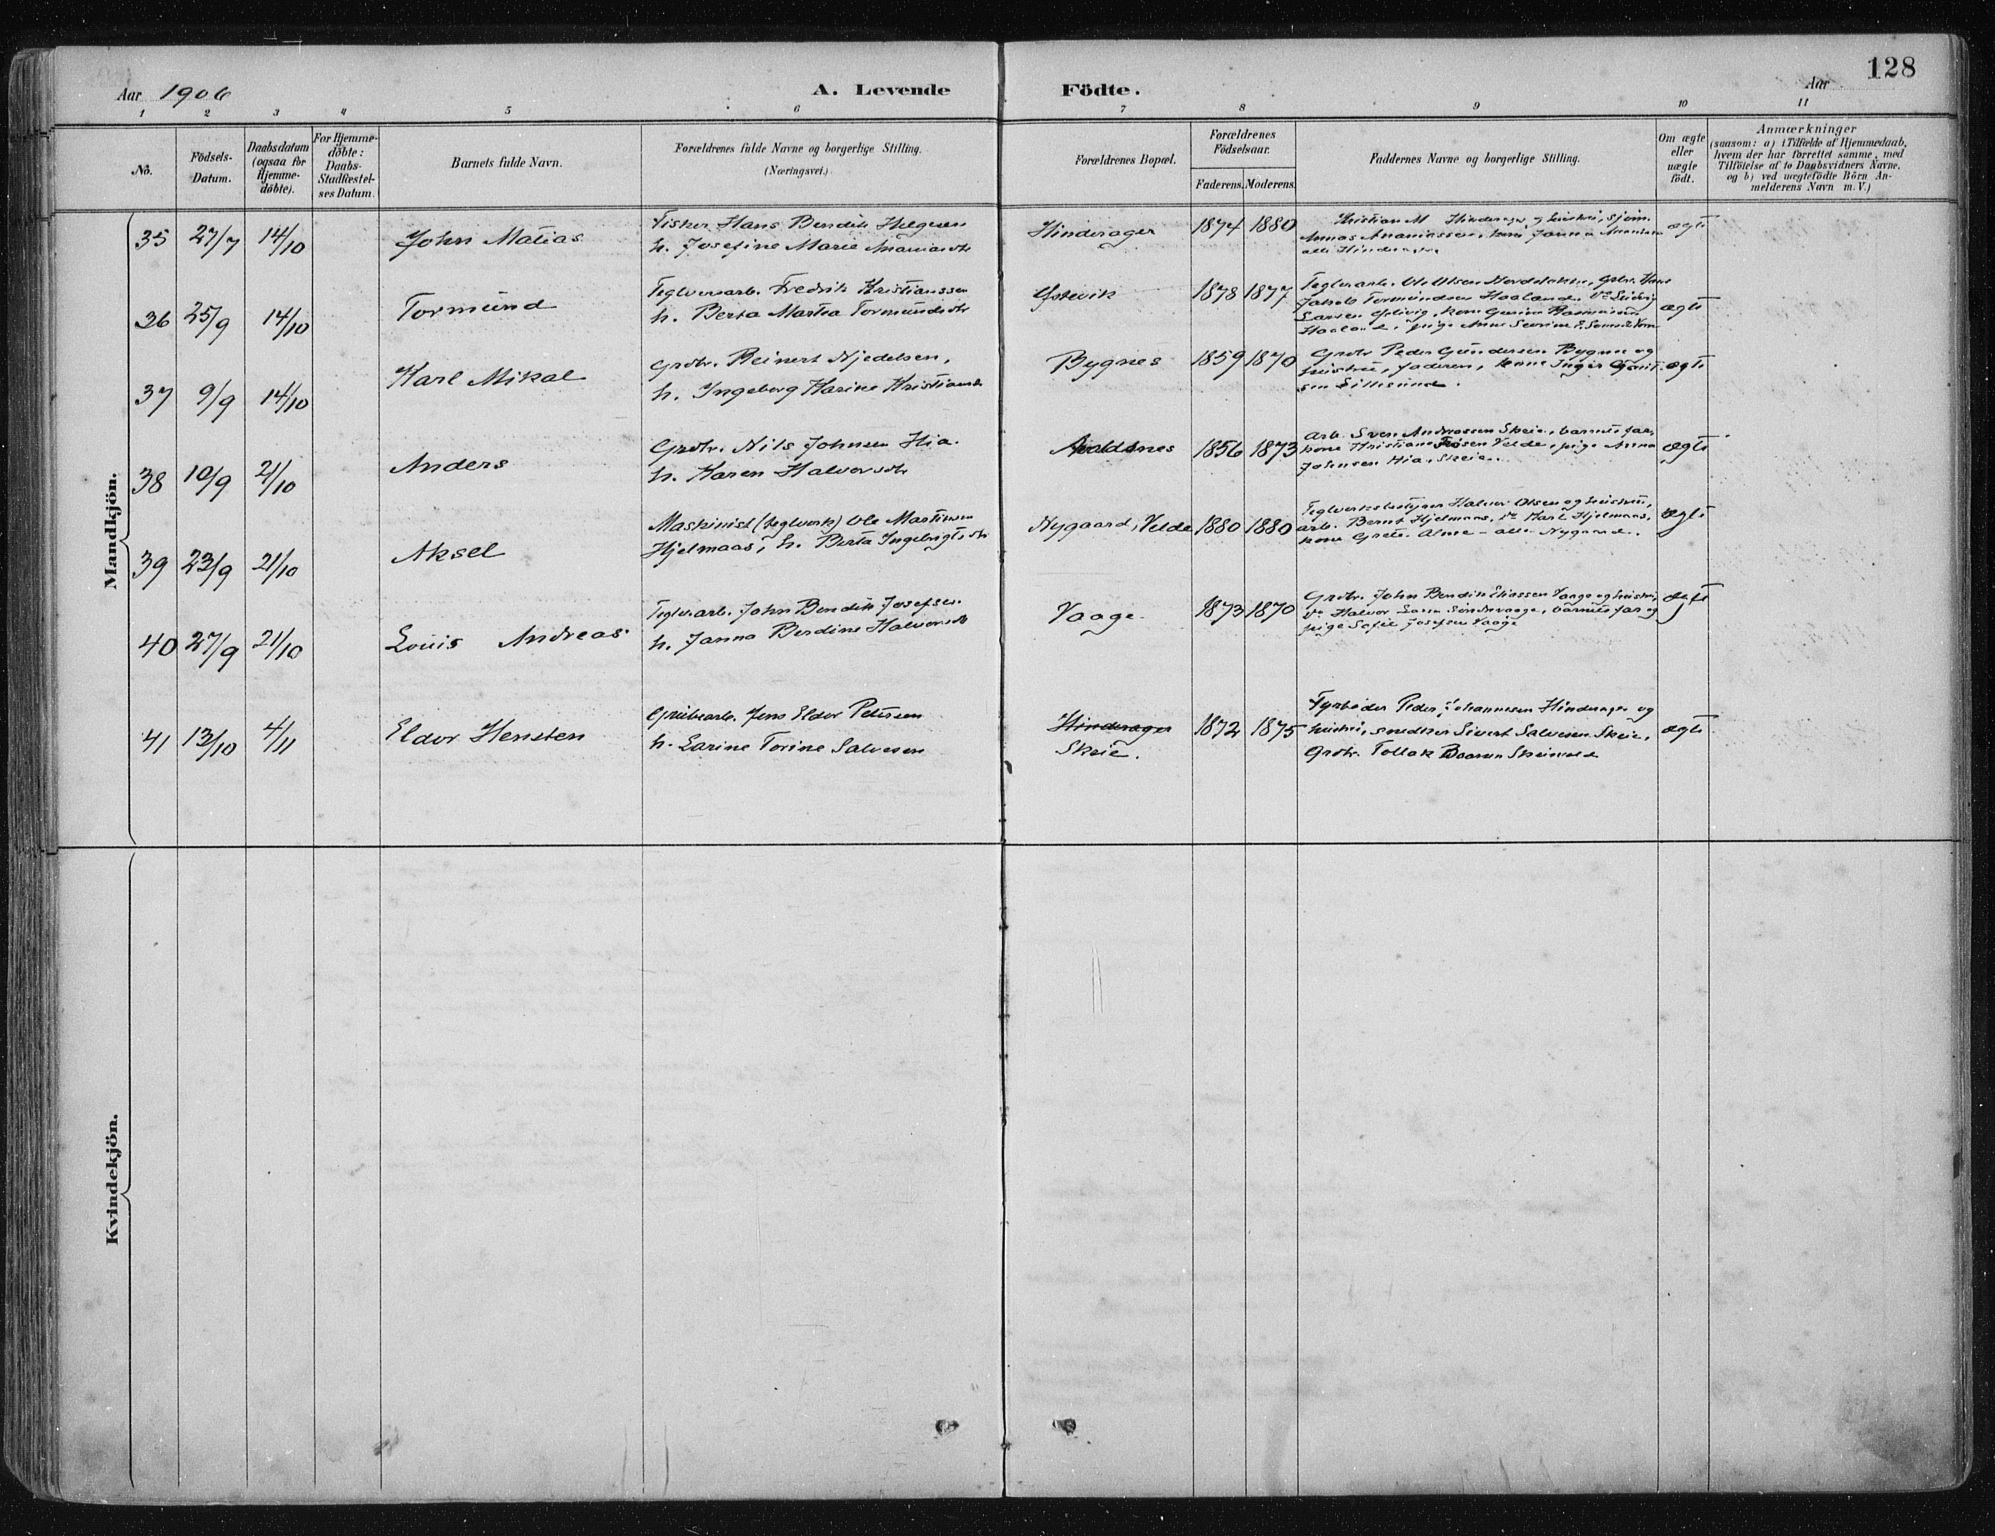 Aar 1906
A. Levende
Födte.
Aar
128
1 2 3 4 5 6 7 8 9 10 11
No.
Födsels-Datum.
Daabsdatum (ogsaa for Hjemme-döbte).
For Hjemme-döbte: Daabs-Stadfæstel-ses Datum.
Barnets fulde Navn.
Forældrenes fulde Navne og borgerlige Stilling.
(Næringsvei.)
Forældrenes Bopæl.
Forældrenes Födselsaar.
Faderens. Moderens.
Faddernes Navne og borgerlige Stilling.
Om ægte eller uægte födt.
Anmærkninger
(saasom: a) i Tilfælde af Hjemmedaab, hvem der har forrettet samme, med Tilföielse af to Daabsvidners Navne, og b) ved uægtefödte Börn An-melderens Navn m. V.)
Mandkjön.
35 27/7 14/10 John Matias
Fisker Hans Bendik Helgesen
h. Josefine Marie Ananiasdtr
Hinderager 1874 1880
Kristian M Hinderager og hustru,
Annas Ananiassen, kone Janna
alle Hinderager
ægte
36 25/9 14/10 Tormund
Teglverksarb. Fredrik Kristianssen
h. Berta Martea Tormundsdtr
1878 1877
Teglverarb. Ole Olsen
Jakob Tormundsen Haaland
ægte
37 9/9 14/10 Karl Mikal
Grdbr. Reinert Njedelsen,
h. Ingeborg Karine Kristiansdtr
Bygnes 1859 1870
Grdbr Peder Gundersen Bygnes og
hustru, faderen, kone Inger
ægte
38 10/9 21/10 Anders
Grdbr. Nils Johnsen Hia.
h. Karen Halvorsdtr
Avaldsnes 1856 1873
arb. Sven Andreassen Skeie, barnets far,
kone Kristiane Velde, pige Anna
Johnsen Hia, Skeie.
ægte
39 23/9 21/10 Aksel
Maskinist (teglverk) Ole Martinsen
Hjelmaas, h. Berta Ingebrigtsdtr
Nygaard, Velde 1880 1880
Teglverksbestyrer Halvor Olsen og hustru,
arb. Bernt Hjelmaas, do Karl Hjelmaas,
kone Grete Alme - alle Nygaard.
ægte
40 27/9 21/10 Louis Andreas
Teglverarb. John Bendik Josefsen
h. Janna Berdine Halvorsdtr
Vaage. 1873 1870
Grdbr. John Bendik Eliassen Vaage og hustru,
do Halvor Larsen Söndrevaage, barnets far og
pige Sofie Josefsen Vaage
ægte
41 13/10 4/11 Eldor Hensten
Grubearb. Jens Eldor Petersen
h. Larine Torine Salvesen
Hinderager
Skeie. 1872 1875
Fyrböder Peder Johannesen Hinderager og
hustru, snedker Sivert Salvesen Skeie,
Grdbr. Tollak Baarsen
ægte
Kvindekjön.